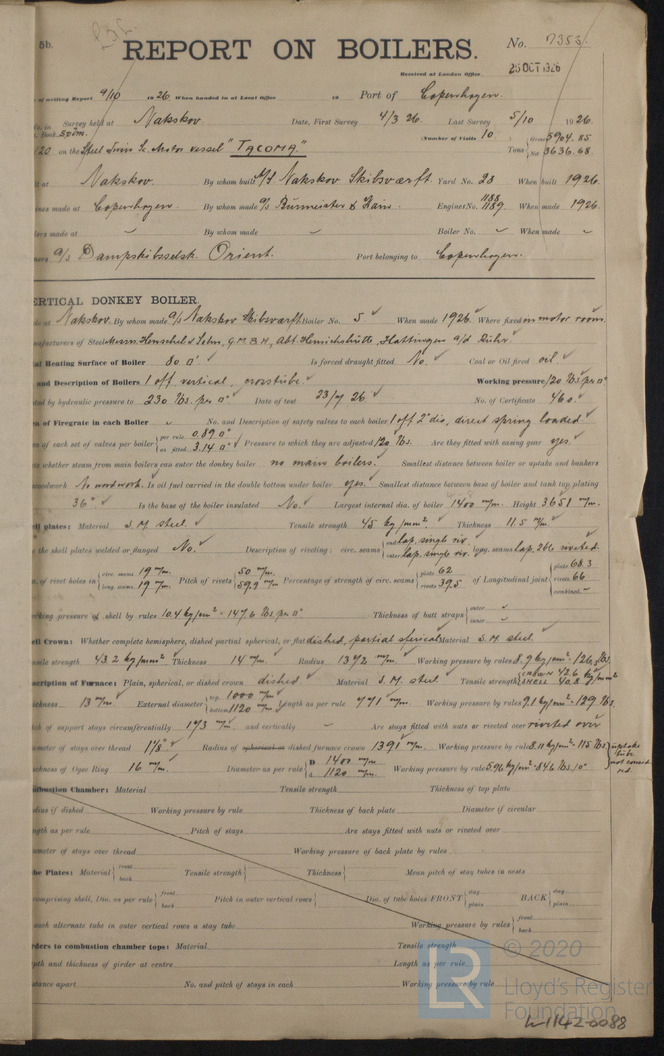 5b.
REPORT ON BOILERS.
No. 7353.
Received at London Office
25 OCT 1926
of writing Report 9/10 1926 When handed in at Local Office 19 Port of Copenhagen.
Survey held at Nakskov. Date, First Survey 4/3 26. Last Survey 5/10 1926.
Book.
(Number of Visits 10)
20 on the Steel Twin Sc. Motor vessel "Tacoma" Tons Gross 5904.85
Net 3636.68.
at Nakskov. By whom built A/S Nakskov Skibsværft. Yard No. 23 When built 1926.
made at Copenhagen. By whom made A/S Burmeister & Wain. Engine No. 1188 1189. When made 1926.
made at - By whom made - Boiler No. - When made -
A/S Dampskibsselsk. Orient. Port belonging to Copenhagen.
VERTICAL DONKEY BOILER.
at Nakskov. By whom made A/S Nakskov Skibsværft. Boiler No. 5 When made 1926. Where fixed on motor room.
of Steel Messrs. Henschel & Sohn, G.M.B.H., Abt. Henrichshütte, Hattingen a/d Ruhr
Heating Surface of Boiler 80 □' Is forced draught fitted No. Coal or Oil fired oil.
and Description of Boilers 1 off vertical, crosstube. Working pressure 120 lbs. per □"
by hydraulic pressure to 230 lbs. per □" Date of test 23/7 26 No. of Certificate 460.
of Firegrate in each Boiler - No. and Description of safety valves to each boiler 1 off 2" dia, direct spring loaded
of each set of valves per boiler per rule 0.89 □" as fitted 3.14 □" Pressure to which they are adjusted 120 lbs. Are they fitted with easing gear yes.
whether steam from main boilers can enter the donkey boiler no main boilers. Smallest distance between boiler or uptake and bunkers
woodwork No woodwork. Is oil fuel carried in the double bottom under boiler yes. Smallest distance between base of boiler and tank top plating
36". Is the base of the boiler insulated No. Largest internal dia. of boiler 1400 m/m. Height 3651 m/m.
plates: Material S.M. steel. Tensile strength 45 kg/mm². Thickness 11.5 m/m.
the shell plates welded or flanged No. Description of riveting: circ. seams end lap, single riv. inter lap, single riv. long. seams lap, dbl. riveted.
of rivet holes in circ. seams 19 m/m. long. seams 19 m/m. Pitch of rivets 50 m/m. 59.9 m/m. Percentage of strength of circ. seams plate 62 rivets 39.5 of Longitudinal joint plate 68.3 rivets 66 combined -
working pressure of shell by rules 10.4 kg/cm² = 147.6 lbs. per □" Thickness of butt straps outer - inner -
Shell Crown: Whether complete hemisphere, dished partial spherical, or flat dished, partial spherical. Material S.M. steel
strength 43.2 kg/mm² Thickness 14 m/m. Radius 1372 m/m. Working pressure by rules 8.9 kg/cm² = 126.5 lbs.
Description of Furnace: Plain, spherical, or dished crown dished Material S.M. steel. Tensile strength CROWN 42.6 SHELL 40.8 kg/mm²
13 m/m. External diameter top 1000 m/m bottom 1120 m/m Length as per rule 771 m/m. Working pressure by rules 9.1 kg/cm² = 129 lbs.
of support stays circumferentially 173 m/m. and vertically - Are stays fitted with nuts or riveted over riveted over
of stays over thread 1⅛" Radius of spherical or dished furnace crown 1391 m/m. Working pressure by rule 8.11 kg/cm² = 115 lbs.
uptake tube not considered.
of Ogee Ring 16 m/m. Diameter as per rule D 1400 m/m d 1120 m/m. Working pressure by rule 5.96 kg/cm² = 84.6 lbs/□"
Combustion Chamber: Material Tensile strength Thickness of top plate
if dished Working pressure by rule Thickness of back plate Diameter if circular
as per rule Pitch of stays Are stays fitted with nuts or riveted over
of stays over thread Working pressure of back plate by rules
Plates: Material front back Tensile strength Thickness Mean pitch of stay tubes in nests
comprising shell, Dia. as per rule front back Pitch in outer vertical rows Dia. of tube holes FRONT stay plain BACK stay plain
each alternate tube in outer vertical rows a stay tube Working pressure by rules front back
Girders to combustion chamber tops: Material Tensile strength
and thickness of girder at centre Length as per rule
apart No. and pitch of stays in each Working pressure by rule
LR
© 2020
Lloyd's Register
Foundation
W1142-0088